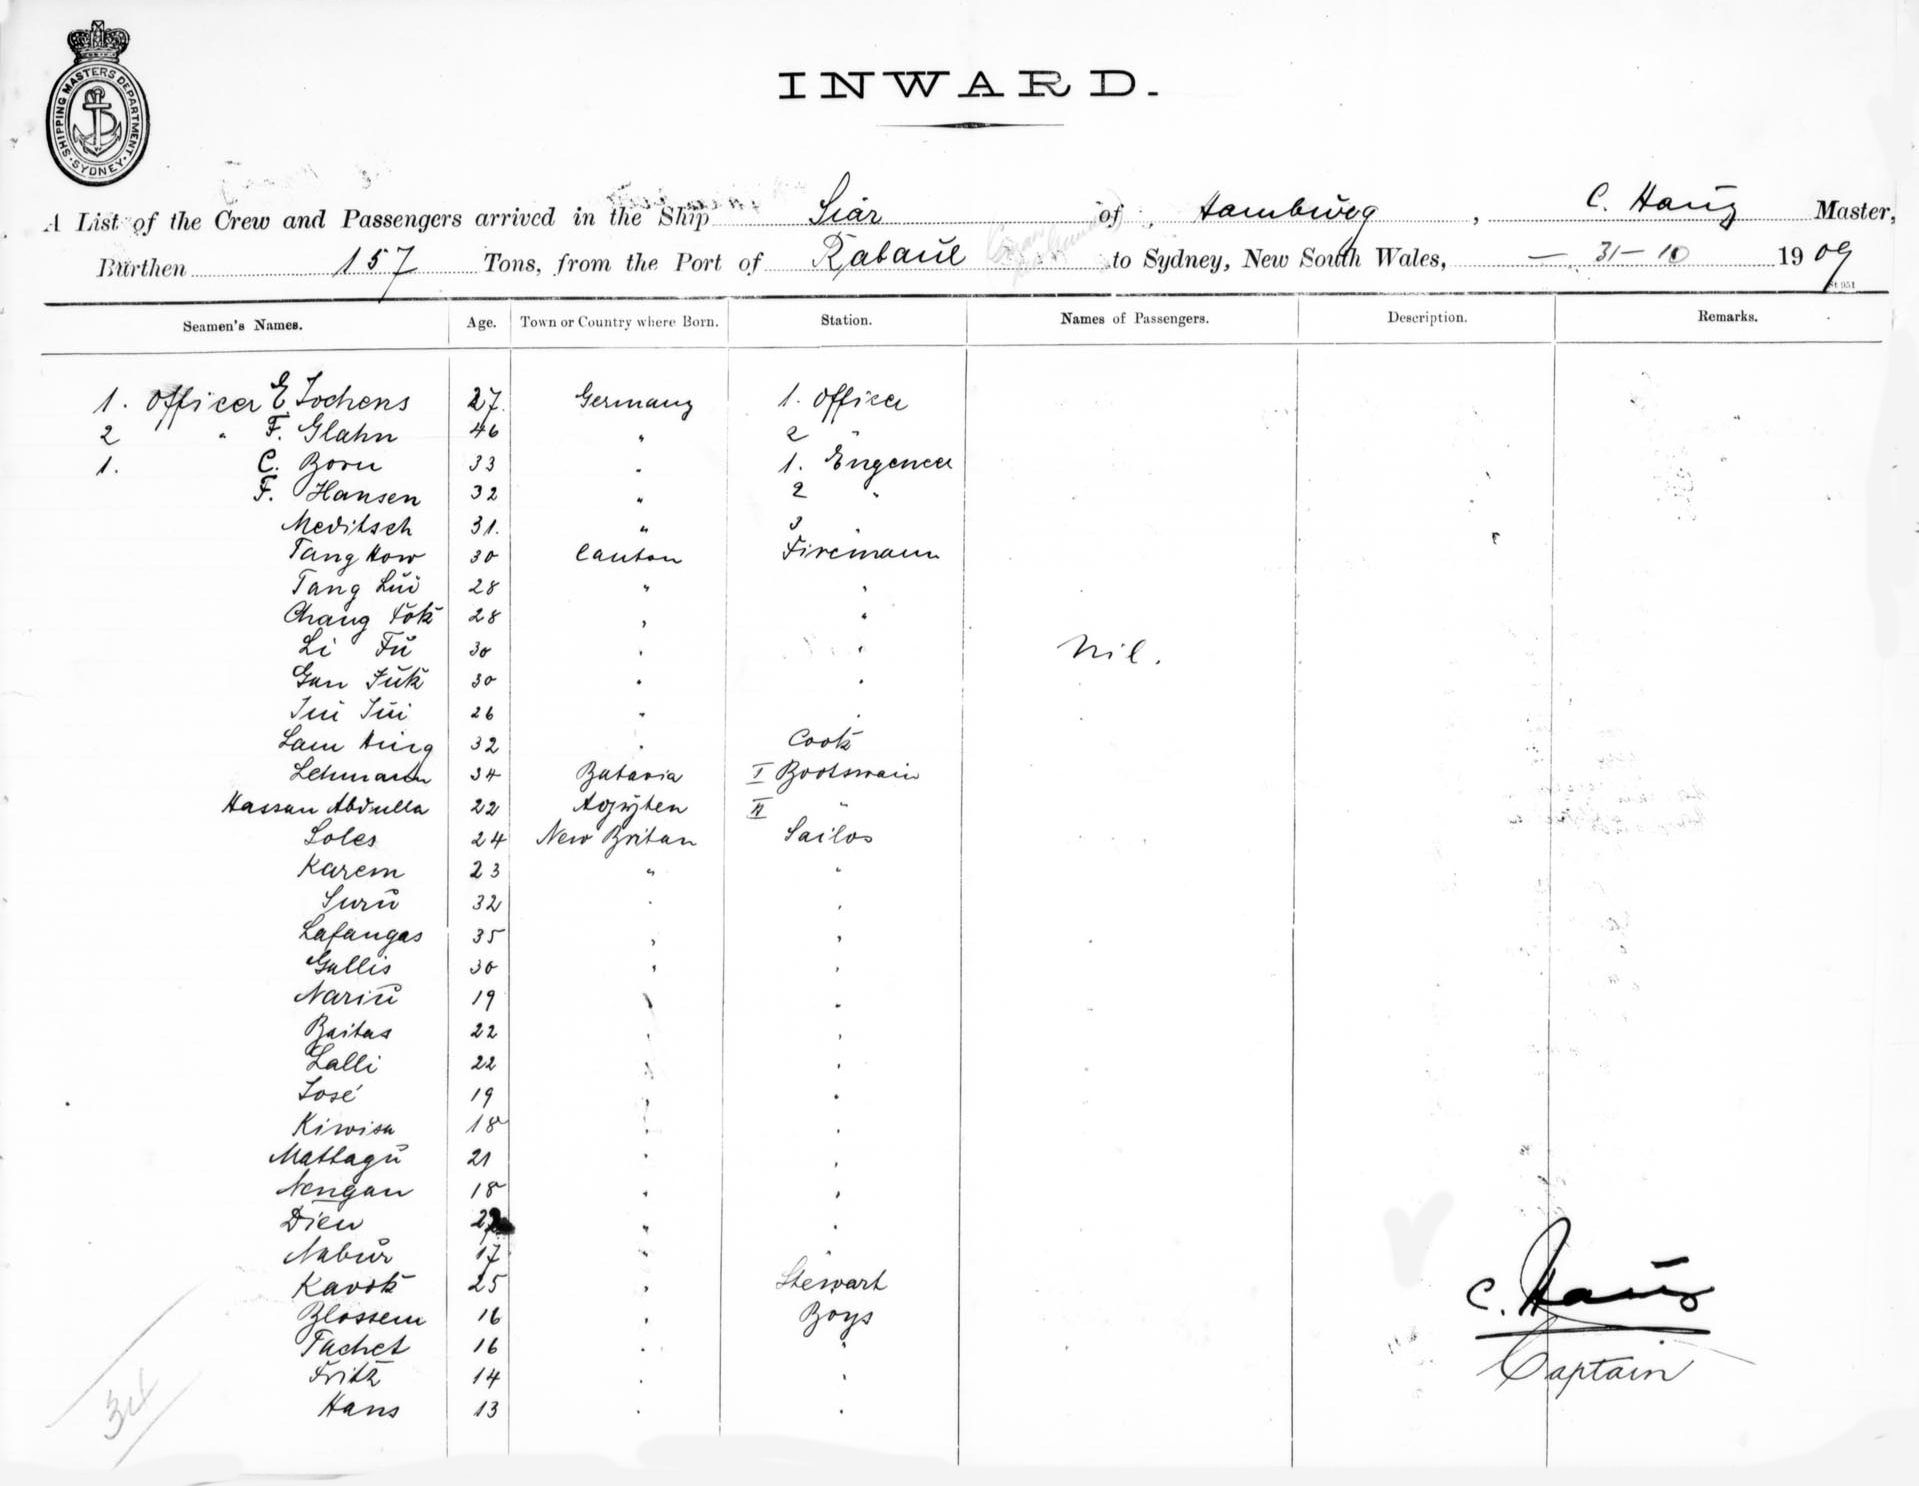 SHIPPING MASTERS DEPARTMENT
SYDNEY
INWARD.
A List of the Crew and Passengers arrived in the Ship Siar of Hamburg, C. Haug Master,
Burthen 157 Tons, from the Port of Rabaul to Sydney, New South Wales, — 31-10 1909
Seamen's Names. Age. Town or Country where Born. Station. Names of Passengers. Description. Remarks.
1. Officer E. Jochens 27. Germany 1. Officer
2 " F. Glahn 46 " 2 "
1. C. Born 33 " 1. Engeneer
F. Hansen 32 " 2 "
Meditsch 31. " 3 "
Tang How 30 Canton Firemann
Tang Lui 28 " "
Chang Fok 28 " "
Li Fu 30 " "
Nil.
Gan Fuk 30 " "
Jui Jui 26 " "
Lam Hing 32 " Cook
Lehmann 34 Batavia I Bootswain
Hassan Abdulla 22 Agyten II "
Soles 24 New Britan Sailos
Karem 23 " "
Suru 32 " "
Lafangas 35 " "
Gallis 30 " "
Nariu 19 " "
Baitas 22 " "
Lalli 22 " "
José 19 " "
Kiwisa 18 " "
Mattagu 21 " "
Nengan 18 " "
Dieu 27 " "
Nabur 17 " "
Kavok 25 " Stewart
Blossem 16 " Boys
Tachet 16 " "
Fritz 14 " "
Hans 13 " "
C. Haug
Captain
34